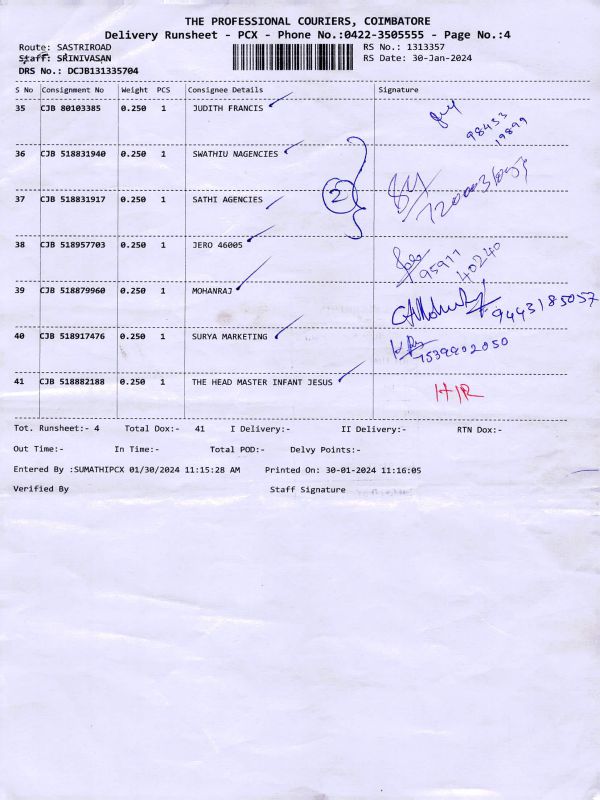 THE PROFESSIONAL COURIERS, COIMBATORE
Delivery Runsheet - PCX - Phone No.:0422-3505555 - Page No.:4
Route: SASTRIROAD
RS No.: 1313357
Staff: SRINIVASAN
RS Date: 30-Jan-2024
DRS No.: DCJB131335704
S No Consignment No Weight PCS Consignee Details Signature
35 CJB 80103385 0.250 1 JUDITH FRANCIS 98433 19899
36 CJB 518831940 0.250 1 SWATHIU NAGENCIES
2
37 CJB 518831917 0.250 1 SATHI AGENCIES
38 CJB 518957703 0.250 1 JERO 46005 95911 40240
39 CJB 518879960 0.250 1 MOHANRAJ 9443185057
40 CJB 518917476 0.250 1 SURYA MARKETING 7539902050
41 CJB 518882188 0.250 1 THE HEAD MASTER INFANT JESUS
Tot. Runsheet:- 4 Total Dox:- 41 I Delivery:- II Delivery:- RTN Dox:-
Out Time:- In Time:- Total POD:- Delvy Points:-
Entered By :SUMATHIPCX 01/30/2024 11:15:28 AM Printed On: 30-01-2024 11:16:05
Verified By Staff Signature